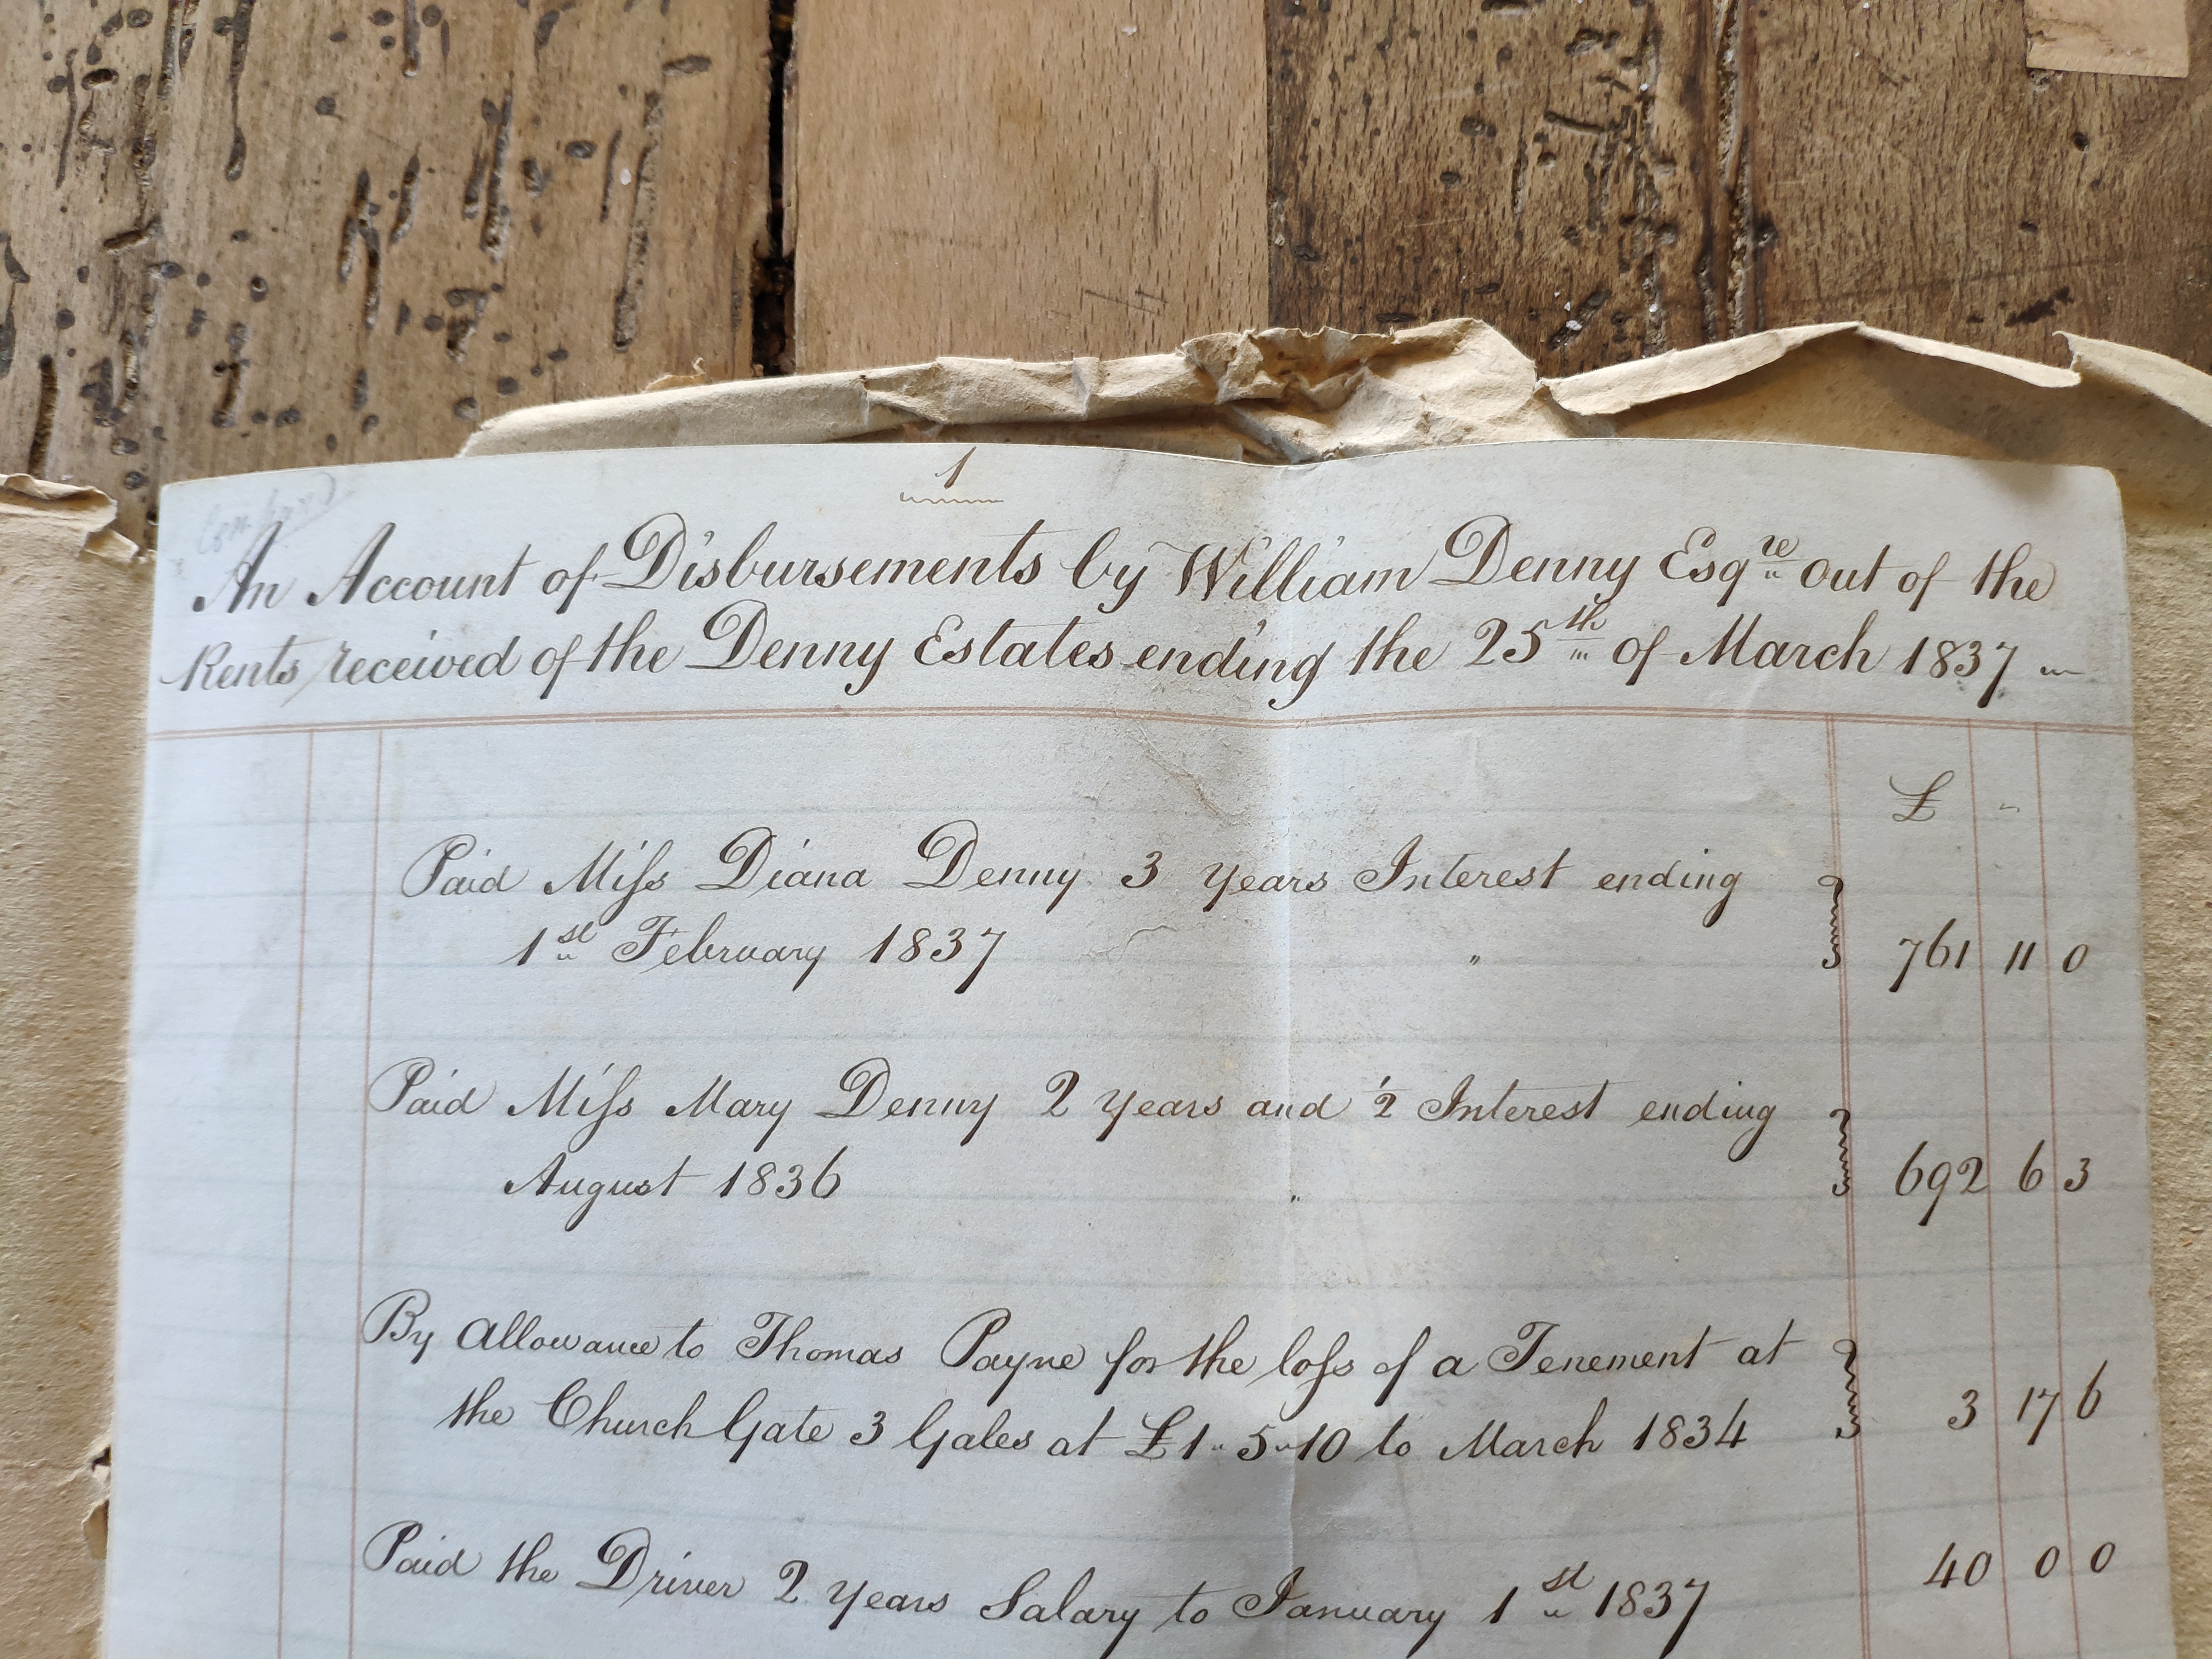 1
An Account of Disbursements by William Denny Esqre out of the
Rents received of the Denny Estates ending the 25th of March 1837
£
Paid Miſs Diana Denny 3 years Interest ending
1st February 1837 " 761 11 0
Paid Miſs Mary Denny 2 years and ½ Interest ending
August 1836 " 692 6 3
By Allowance to Thomas Payne for the loſs of a Tenement at
the Church Gate 3 Gales at £1 " 5 " 10 to March 1834 3 17 6
Paid the Driver 2 years Salary to January 1st 1837 40 0 0